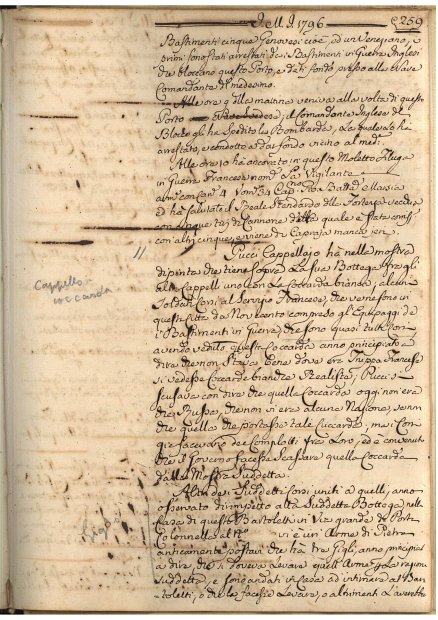 Dell' A 1796
259
Bastimenti cinque Genovesi cioè, ed un Veneziano, i
primi sono stati arrestati da i Bastimenti in Guerra Inglesi
che bloccano questo Porto, e dati fondo presso alla Nave
Comandante di medesimo.
Alle ore 9 della mattina veniva alla volta di questo
Porto Svedese, il Comandante Inglese del
Blocco gli ha spedito la Bombarda, la quale lo ha
arrestato, e condotto a dar fondo vicino al med:
Alle ore 10 ha ancorato in questo Moletto Filuga
in Guerra Francese nom: La Vigilante
arm: con Can: 4 Uom: 34 Cap:
ed ha salutato il Reale Stendardo delle Fortezze
con cinque tiri di Cannone della quale è stata
con altri cinque, e viene di Capraja manca jeri
11
Pucci Cappellajo hà nella mostra
dipinta che tiene sopra la sua Bottega fra gli
altri Cappelli uno con la Coccarda bianca, alcuni
Soldati Corsi al Servizio Francese, che venefono in
questa Città da compreso gli Equipaggi de
i Bastimenti in Guerra, che sono quasi tutti Corsi
avendo veduto questa Coccarda anno principiato a
dire che non stava bene dove era Truppa Francese
si vedesse Coccarde bianche Realista, Pucci si
scusava con dire che quella Coccarda oggi non era
che Russa, che non vi era alcuna Nazione, se non
che quella che portasse tale Cuccarda, ma i Corsi
facevano dei Complotti fra Loro, ed è convenuto
che il Governo facesse scassare quella Coccarda
dalla Mostra Suddetta.
Altri dei Suddetti Corsi uniti a quelli, anno
osservato dirimpetto alla Suddetta Bottega nella
Casa di questi Bartoletti in Via grande da Porta
Colonnella al N° vi è un' Arme di Pietra
anticamente postavi che ha tre Gigli, anno principiato
a dire, che si doveva Levare quell' Arme
Suddetta, e sono andati in Casa ad intimare a i Bar-
toletti, o che la facesse Levare, o altrimenti L'averebbe
Cappello
coccarda
Gigli